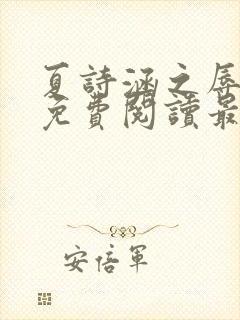 夏詩涵之辱
免費閱讀最
安倍軍